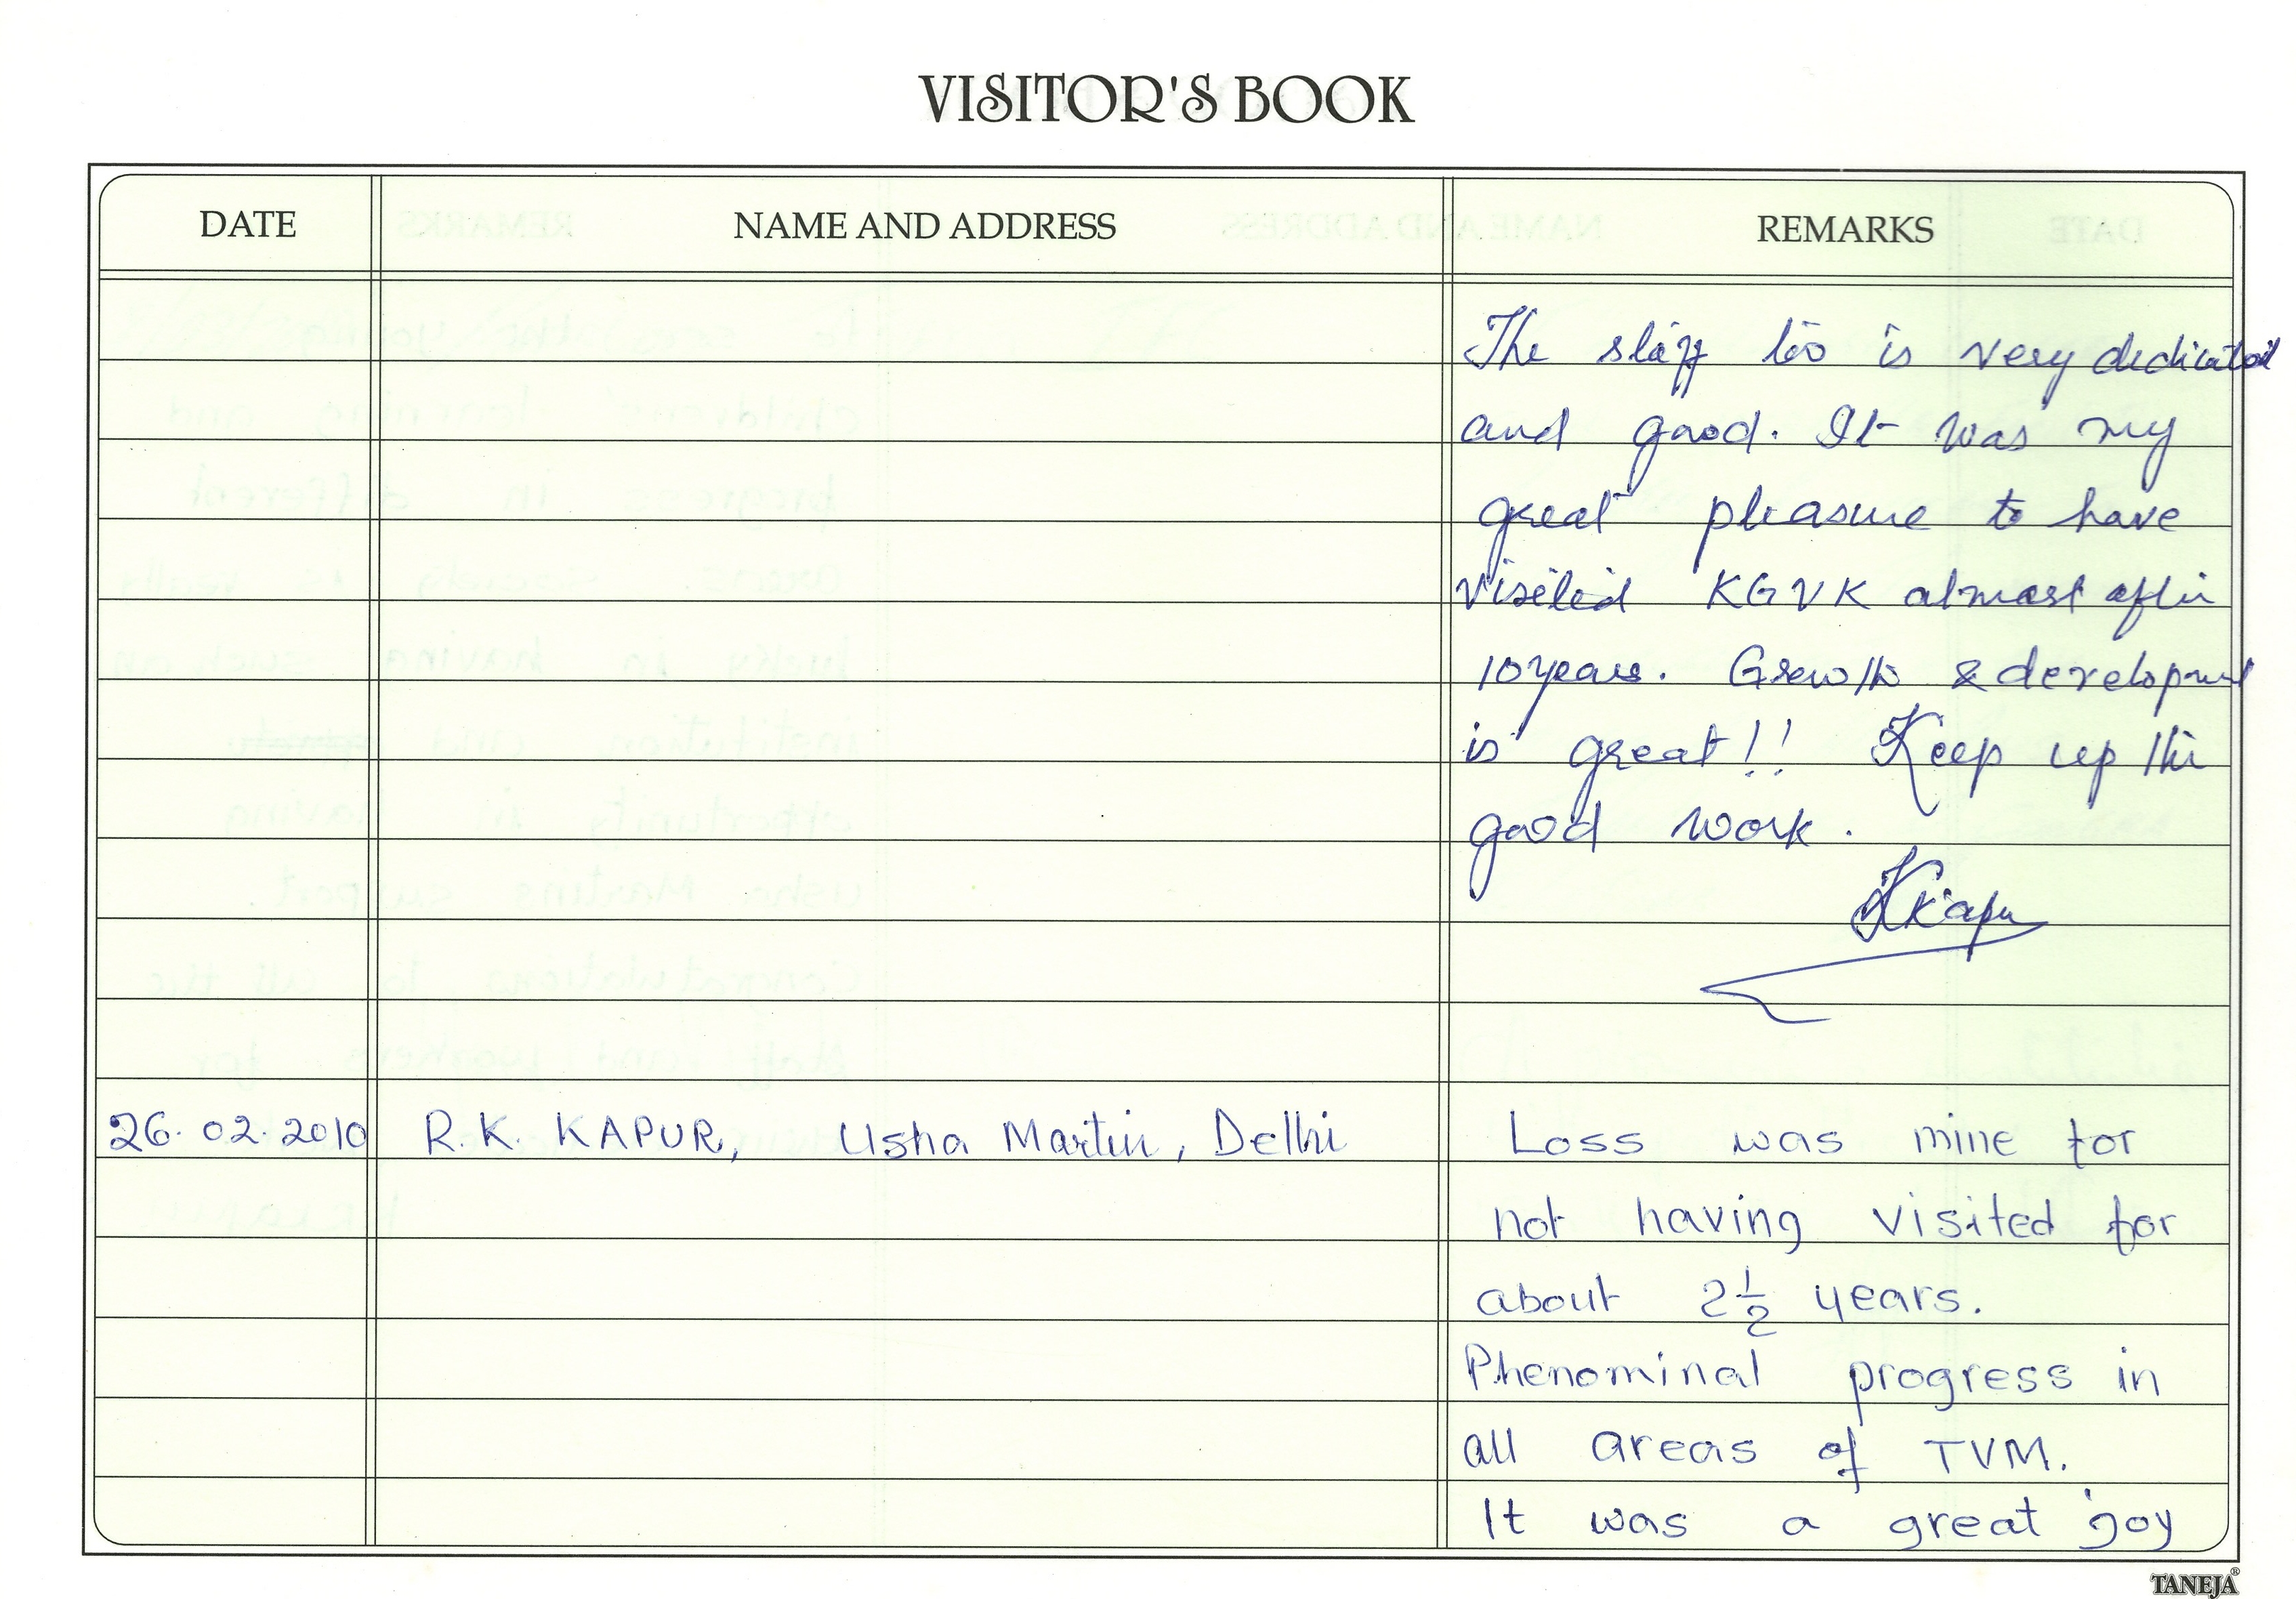 VISITOR'S BOOK
DATE NAME AND ADDRESS REMARKS
The staff too is very dedicated
and good. It was my
great pleasure to have
visited KGVK almost after
10 years. Growth & development
is great!! Keep up the
good work.
KKapur
26.02.2010 R.K. KAPUR, Usha Martin, Delhi Loss was mine for
not having visited for
about 2½ years.
Phenominal progress in
all areas of TVM.
It was a great joy
TANEJA®